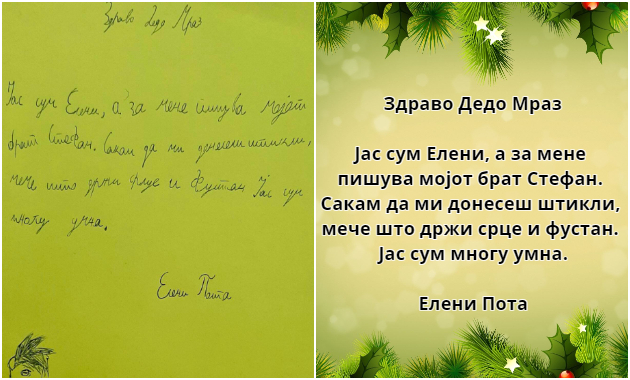 Здраво Дедо Мраз
Јас сум Елени, а за мене пишува мојот
брат Стефан. Сакам да ми донесеш штикли,
мече што држи срце и фустан Јас сум
многу умна.
Елени Пота
Здраво Дедо Мраз
Јас сум Елени, а за мене
пишува мојот брат Стефан.
Сакам да ми донесеш штикли,
мече што држи срце и фустан.
Јас сум многу умна.
Елени Пота